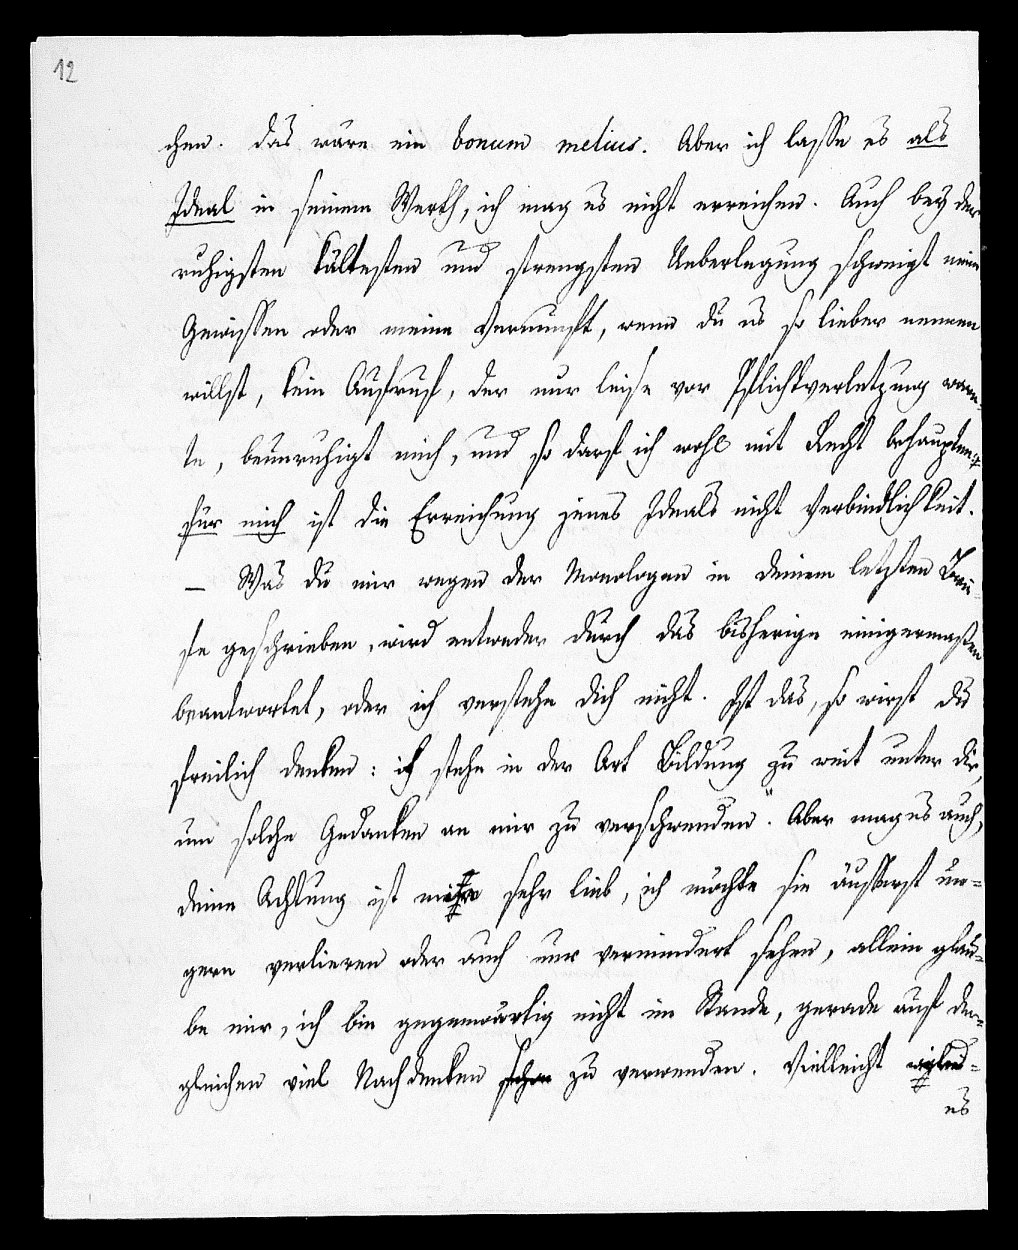 12
chen. Das wäre ein bonum melius. Aber ich lasse es als
Ideal in seinem Werth, ich mag es nicht erreichen. Auch bey der
ruhigsten kältesten und strengsten Ueberlegung schweigt mein
Gewissen oder meine Vernunft, wenn du es so lieber nennen
willst, kein Ausruf, der nur leise vor Pflichtverletzung warn-
te, beunruhigt mich, und so darf ich wohl mit Recht behaupten
für mich ist die Erreichung jenes Ideals nicht Verbindlichkeit.
— Was du mir wegen der Monologen in deinem letzten Brie-
fe geschrieben, wird entweder durch das bisherige einigermaßen
beantwortet, oder ich verstehe dich nicht. Ist das, so wirst du
freilich denken: ich stehe in der Art Bildung zu weit unter dir,
um solche Gedanken an mir zu verschwenden". Aber mag es auch,
deine Achtung ist mir sehr lieb, ich möchte sie äusserst un-
gern verlieren oder auch nur vermindert sehen, allein glau-
be mir, ich bin gegenwärtig nicht im Stande, gerade auf der-
gleichen viel Nachdenken zu verwenden. Vielleicht
es